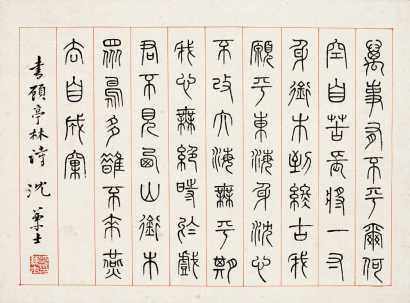 萬事有不平爾何
空自苦長將一寸
身銜木到終古我
願平東海身沈心
不改大海無平期
我心無絕時於戲
君不見西山銜木
眾鳥多鵲不來燕
去自成窠
書顧亭林詩 沈兼士